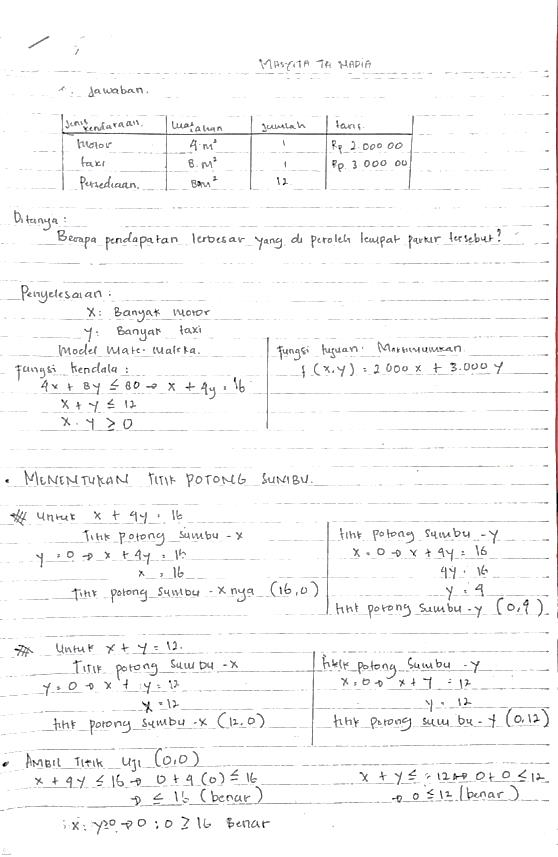 MASYITA TA NADIA
Jawaban.
Jenis kendaraan. Luas lahan Jumlah tarif.
Motor 4 m² 1 Rp 2.000 00
taxi 8. m² 1 Rp. 3 000 00
Persediaan. 80m² 12
Ditanya :
Berapa pendapatan terbesar yang di peroleh tempat parkir tersebut?
Penyelesaian :
X : Banyak motor
y : Banyak taxi
Model Mate-matika.
fungsi kendala :
4x + 8y ≤ 80 → x + 4y = 16
x + y ≤ 12
x . y ≥ 0
fungsi tujuan : Maksimumkan
f (x,y) = 2 000 x + 3.000 y
• MENENTUKAN TITIK POTONG SUMBU.
Untuk x + 4y = 16
Titik potong sumbu - x
y = 0 → x + 4y = 16
x = 16
Titik potong sumbu - x nya (16,0)
titik potong sumbu - y
x = 0 → x + 4y = 16
4y = 16
y = 4
titik potong sumbu - y (0,4)
Untuk x + y = 12.
Titik potong sumbu - x
y = 0 → x + y = 12
x = 12
titik potong sumbu - x (12,0)
titik potong sumbu - y
x = 0 → x + y = 12
y = 12
titik potong sumbu - y (0,12)
• AMBIL TITIK UJI (0,0)
x + 4y ≤ 16 → 0 + 4 (0) ≤ 16
→ ≤ 16 (benar)
x + y ≤ = 12 → 0 + 0 ≤ 12
→ 0 ≤ 12 (benar)
: x : y ≥ 0 → 0 : 0 ≥ 16 Benar